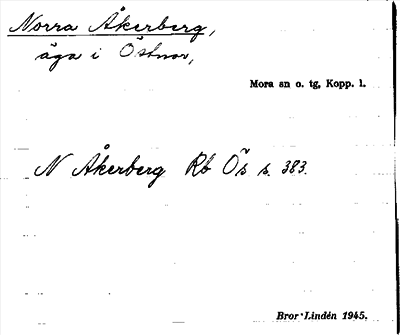 Norra Åkerberg,
äga i Östnor,
Mora sn o. tg, Kopp. l.
N Åkerberg Rb Ös s. 383.
Bror Lindén 1945.